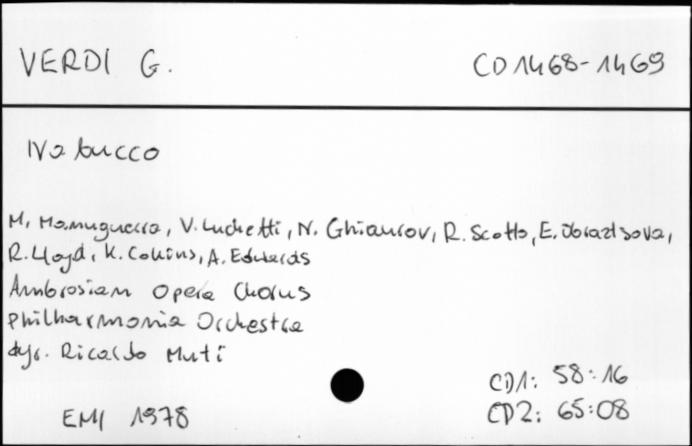 VERDI G. CD1468-1469
Nabucco
M. Manuguerra, V. Luchetti, N. Ghiaurov, R. Scotto, E. Obraztsova,
R. Lloyd, K. Collins, A. Edwards
Ambrosian Opera Chorus
Philharmonia Orchestra
dyr. Ricardo Muti
CD1: 58:16
EMI 1978 CD2: 65:08